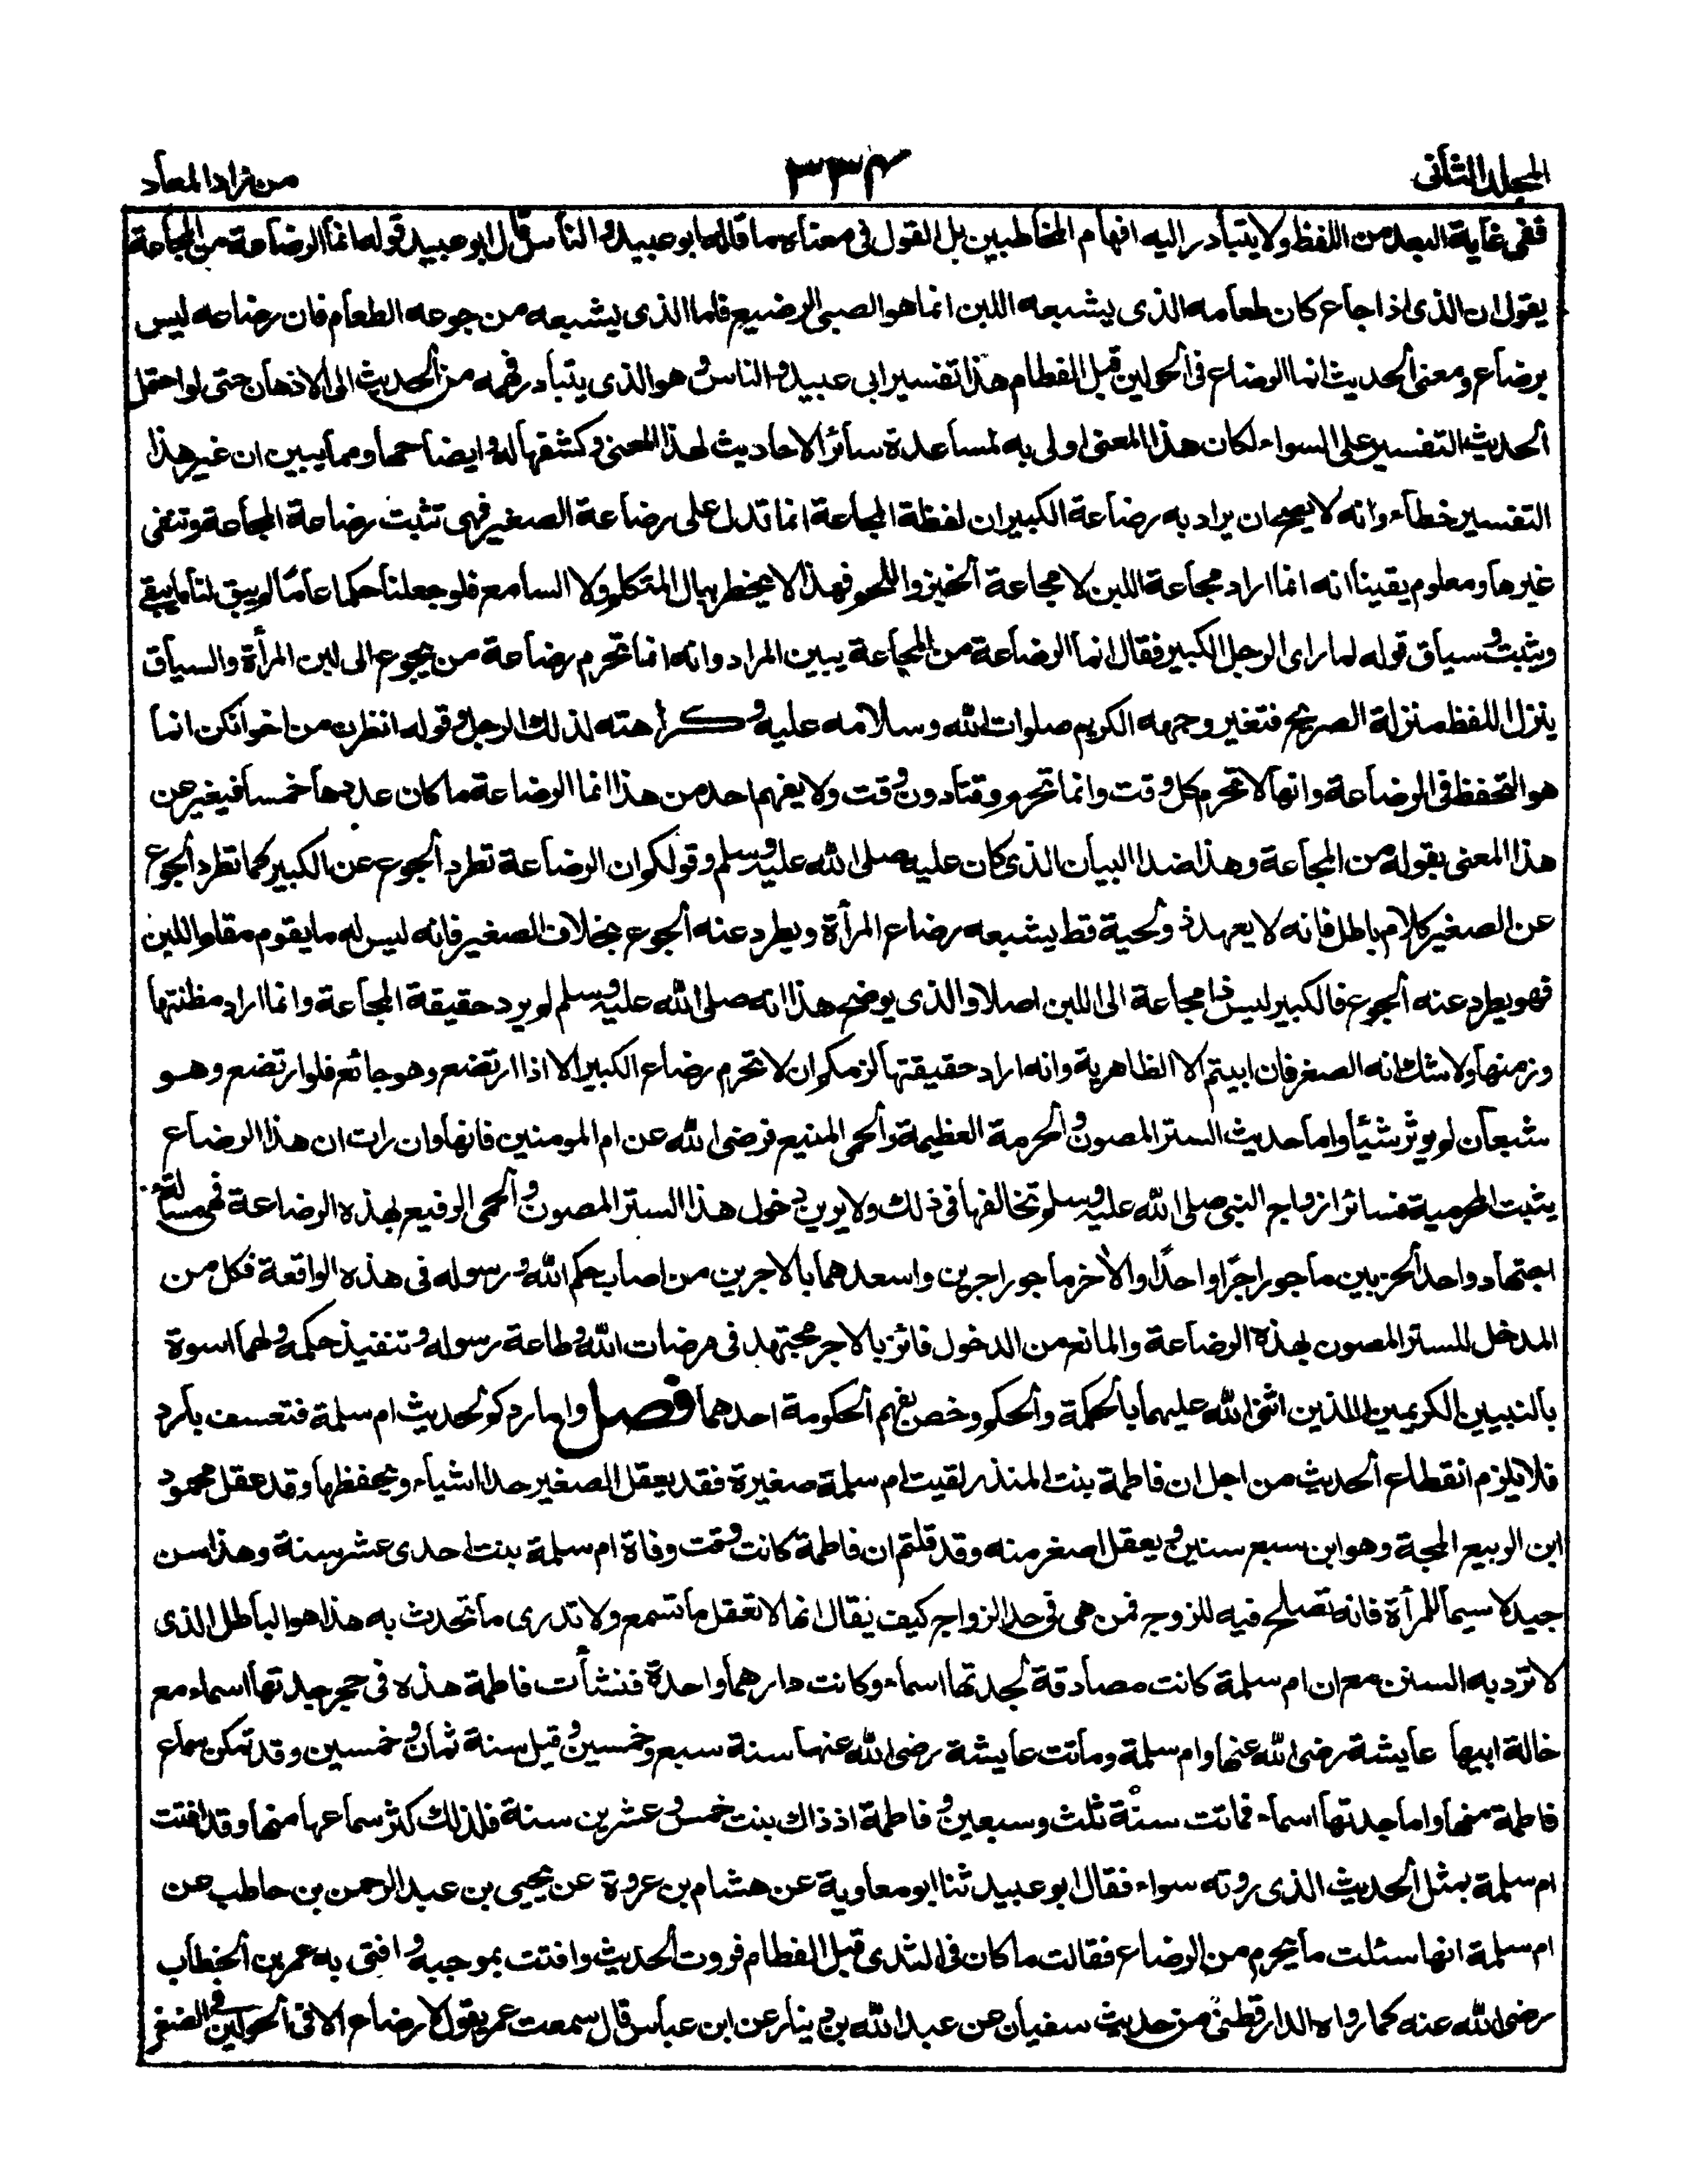 المجلد الثانى
٣٣٤
من زاد المعاد
ففى غاية البعد من اللفظ ولا يتبادر اليه افهام المخاطبين بل القول فى معناه ما قاله ابو عبيد و الناس قال ابو عبيد قوله انما الرضاعة من المجاعة
يقول ان الذى اذا جاع كان طعامه الذى يشبعه اللبن انما هو الصبى الرضيع فاما الذى يشبعه من جوعه الطعام فان رضاعه ليس
برضاع ومعنى الحديث انما الرضاع فى الحولين قبل الفطام هذا تفسير ابى عبيد و الناس و هو الذى يتبادر فهمه من الحديث الى الاذهان حتى لو احتمل
الحديث التفسير على السواء لكان هذا المعنى اولى به لمساعدة سائر الاحاديث لهذا المعنى و كشفها له و ايضاحها ومما يبين ان غير هذا
التفسير خطاء وانه لا يصح ان يراد به رضاعة الكبير ان لفظة المجاعة انما تدل على رضاعة الصغير فهى تثبت رضاعة المجاعة وتنفى
غيرها ومعلوم يقينا انه انما اراد مجاعة اللبن لا مجاعة الخبز و اللحم فهذا لا يخطر ببال المتكلم ولا السامع فلو جعلنا حكما عامًا لم يبق لنا ما ينفى
ويثبت و سياق قوله لما راى الرجل الكبير فقال انما الرضاعة من المجاعة يبين المراد وانه انما تحرم رضاعة من يجوع الى لبن المرأة والسياق
ينزل اللفظ منزلة الصريح فتغير وجهه الكريم صلوات الله وسلامه عليه و كراهته لذلك الرجل و قوله انظرن من اخوانكن انما
هو التحفظ فى الرضاعة وانها لا تحرم كل وقت وانما تحرم وقتا دون وقت ولا يفهم احد من هذا انما الرضاعة ما كان عددها خمسا فيغير عن
هذا المعنى بقوله من المجاعة وهذا ضد البيان الذى كان عليه صلى الله عليه وسلم وقولكم ان الرضاعة تطرد الجوع عن الكبير كما تطرد الجوع
عن الصغير كلام باطل فانه لا يعهد ذو لحية قط يشبعه رضاع المرأة ويطرد عنه الجوع بخلاف الصغير فانه ليس له ما يقوم مقام اللبن
فهو يطرد عنه الجوع فالكبير ليس ذا مجاعة الى اللبن اصلا والذى يوضح هذا انه صلى الله عليه وسلم لم يرد حقيقة المجاعة وانما اراد مظنتها
وزمنها ولا شك انه الصغر فان ابيتم الا الظاهرية وانه اراد حقيقتها لزمكم ان لا تحرم رضاع الكبير الا اذا ارتضع وهو جائع فلو ارتضع وهو
شبعان لم يوثر شيئا واما حديث الستر المصون و الحرمة العظيمة و الحمى المنيع فرضى الله عن ام المومنين فانها وان رات ان هذا الرضاع
يثبت المحرمية فسائر ازواج النبى صلى الله عليه وسلم تخالفها فى ذلك ولا يرين دخول هذا الستر المصون و الحمى الرفيع بهذه الرضاعة فهى مسالة
اجتهاد واحد الحزبين ماجور اجرًا واحدًا والآخر ماجور اجرين واسعدهما بالاجرين من اصاب حكم الله و رسوله فى هذه الواقعة فكل من
المدخل للستر المصون بهذة الرضاعة والمانع من الدخول فائز بالاجر مجتهد فى مرضات الله و طاعة رسوله و تنفيذ حكمه و لهما اسوة
بالنبيين الكريمين اللذين اثنى الله عليهما بالحكمة والحكم و خص بفهم الحكومة احدهما فصل واما ردكم لحديث ام سلمة فتعسف بارد
فلا يلزم انقطاع الحديث من اجل ان فاطمة بنت المنذر لقيت ام سلمة صغيرة فقد يعقل الصغير جدا اشياء و يحفظها وقد عقل محمود
ابن الربيع المجة وهو ابن سبع سنين و يعقل اصغر منه وقد قلتم ان فاطمة كانت وقت وفاة ام سلمة بنت احدى عشر سنة وهذا سن
جيد لا سيما للمرأة فانه تصلح فيه للزوج فمن هى فى حد الزواج كيف يقال انها لا تعقل ما تسمع ولا تدرى ما تحدث به هذا هو الباطل الذى
لا ترد به السنن مع ان ام سلمة كانت مصادقة لجدتها اسماء وكانت دارهما واحدة فنشأت فاطمة هذه فى حجر جدتها اسماء مع
خالة ابيها عايشة رضى الله عنها و ام سلمة و ماتت عايشة رضى الله عنها سنة سبع و خمسين و قيل سنة ثمان و خمسين وقد تمكن سماع
فاطمة منها واما جدتها اسماء فماتت سنة ثلث وسبعين و فاطمة اذ ذاك بنت خمس و عشرين سنة فلذلك كثر سماعها منها وقد افتت
ام سلمة بمثل الحديث الذى روته سواء فقال ابو عبيد ثنا ابو معاوية عن هشام بن عروة عن يحيى بن عبد الرحمن بن حاطب عن
ام سلمة انها سئلت ما يحرم من الرضاع فقالت ما كان فى الثدى قبل الفطام فروت الحديث وافتت بموجبه و افتى به عمر بن الخطاب
رضى الله عنه كما رواه الدارقطنى من حديث سفيان عن عبد الله بن دينار عن ابن عباس قال سمعت عمر يقول لا رضاع الا فى الحولين فى الصغر